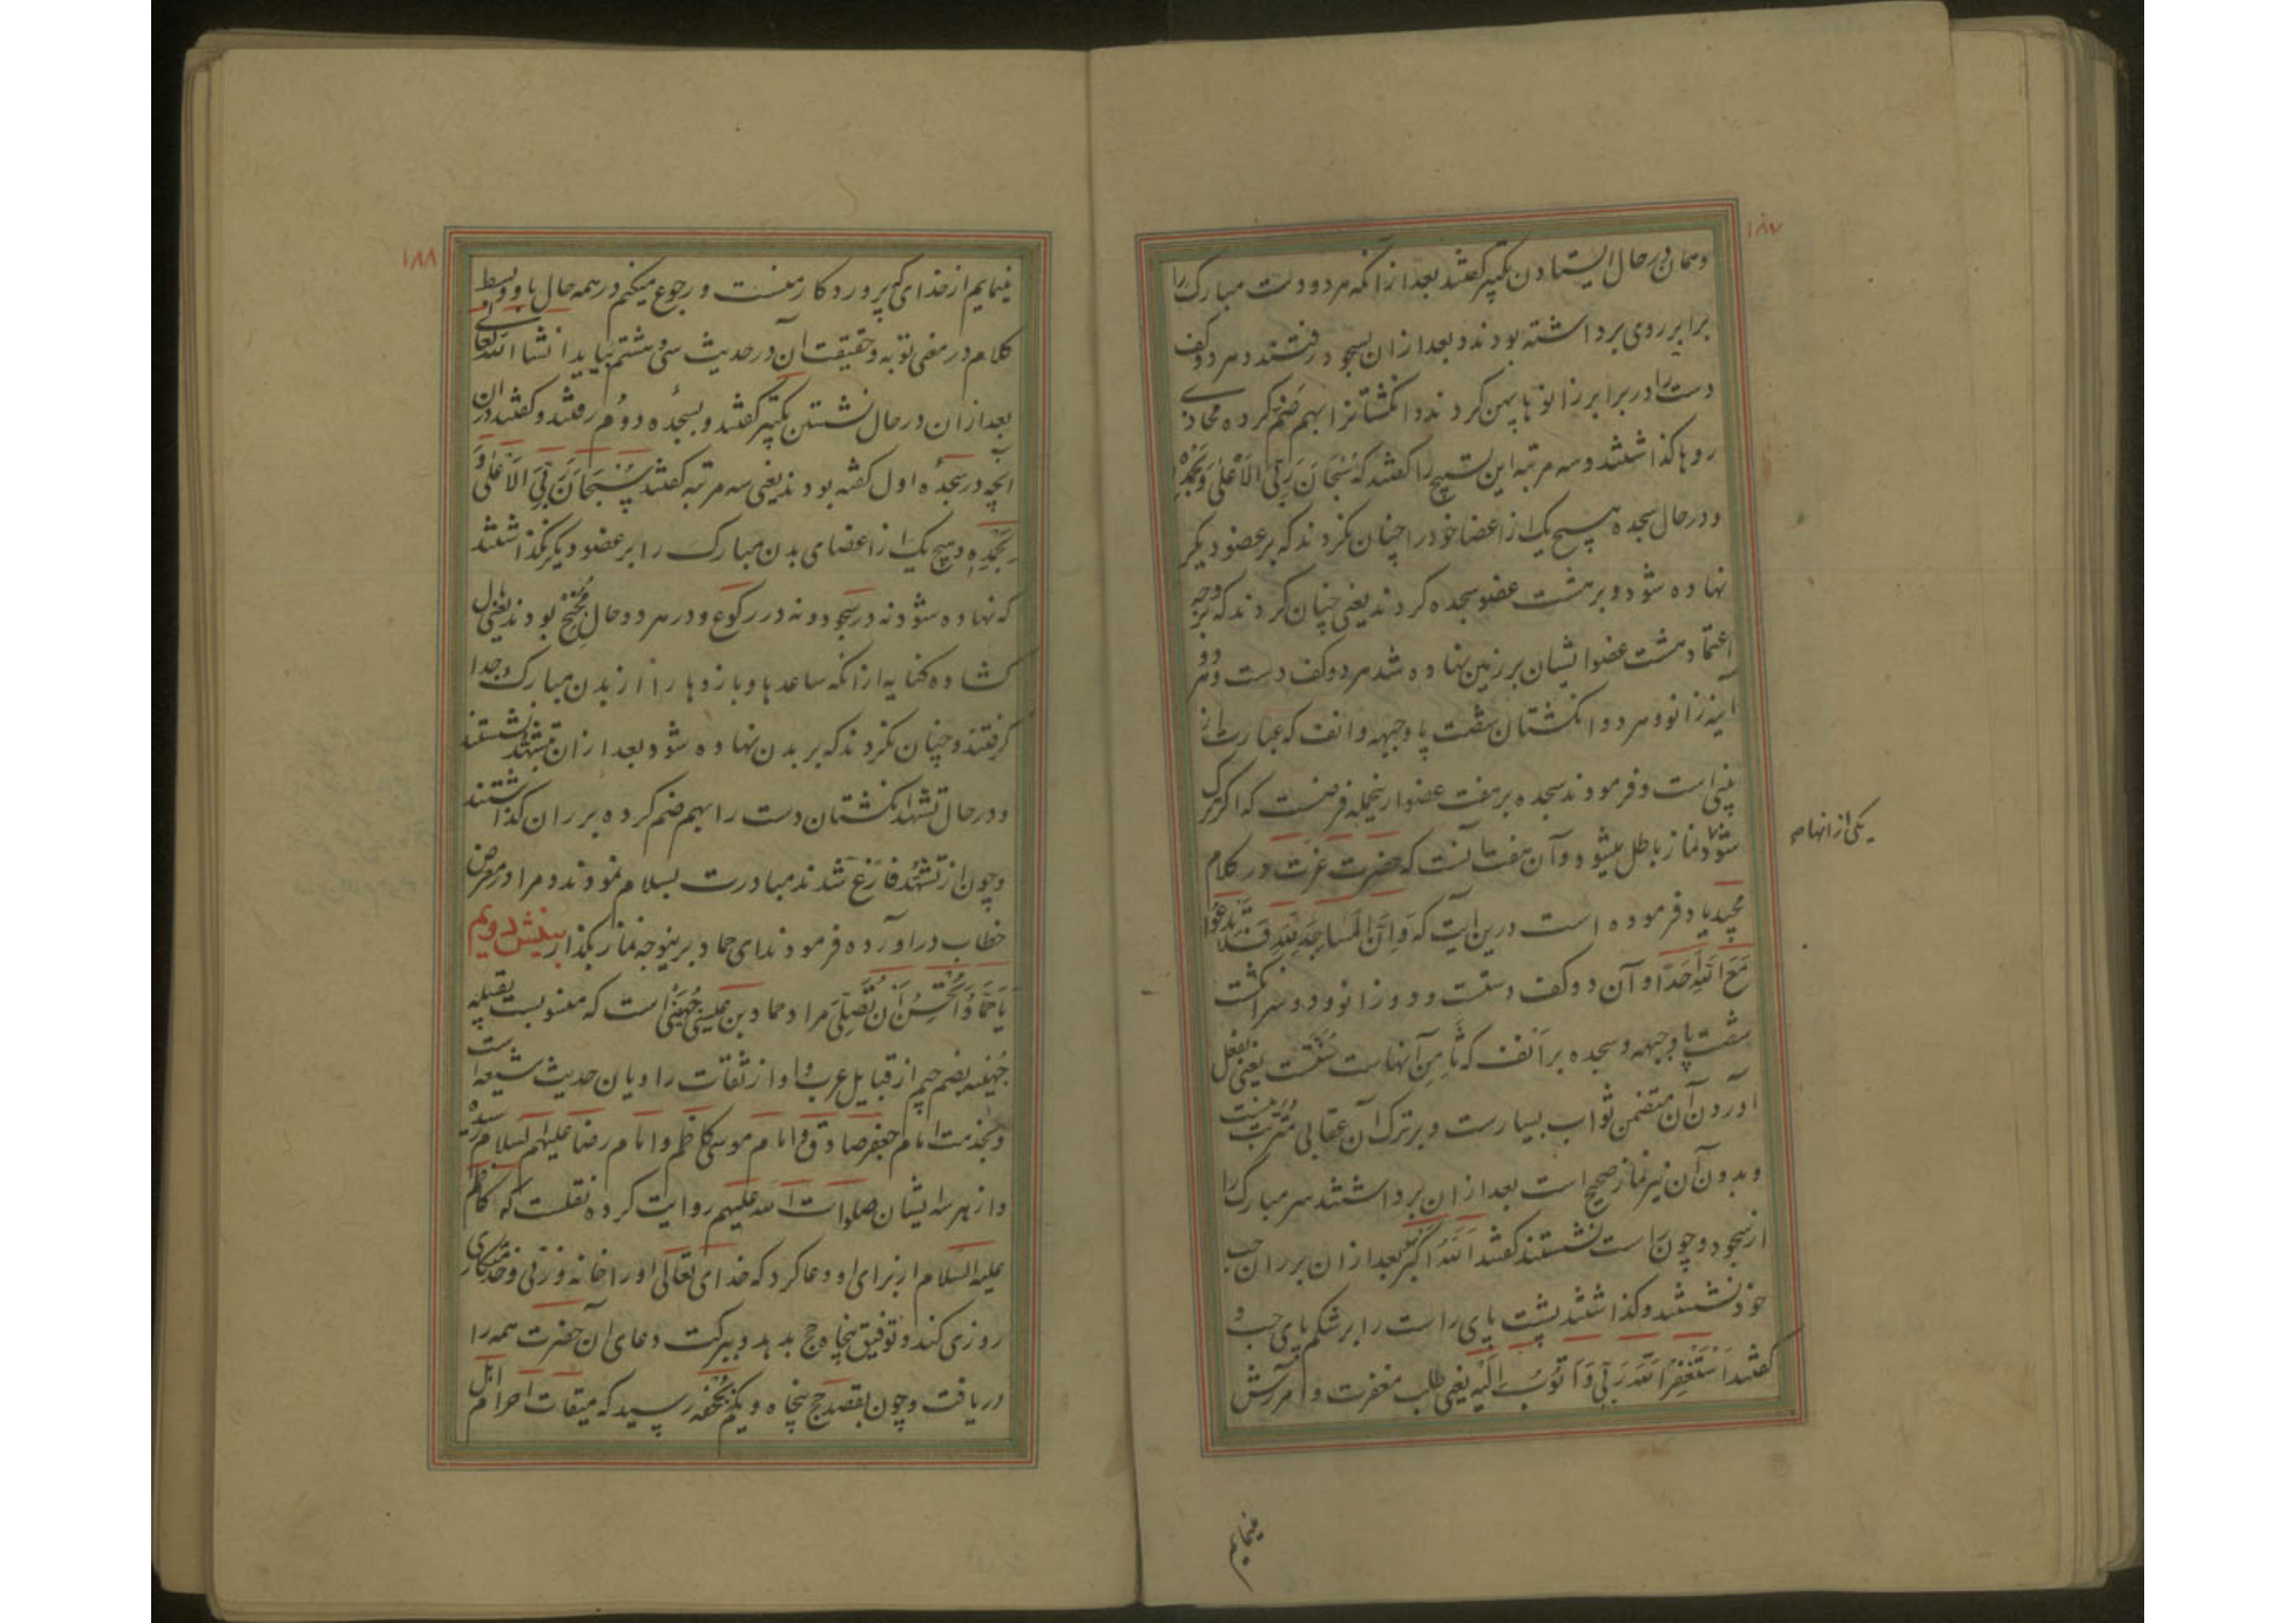 ١٨٧
و همان در حال ایستادن تکبیر کفتند بعد از آنکه هر دو دست مبارک را
برابر روی برداشته بودند و بعد از ان بسجود رفتند و هر دو کف
دست را در برابر زانوها پهن کردند و انکشتانرا بهم ضم کرده محاذی
روها کذاشتند و سه مرتبه این تسبیح را کفتند که سُبْحَانَ رَبِّیَ الْاَعْلیٰ وَبِحَمْدِهٖ
و در حال سجده هیچ یک از اعضا خود را چنان نکردند که بر عضو دیکر
نهاده شود و بر هشت عضو سجده کردند یعنی چنان کردند که بر وجه
اعتماد هشت عضو ایشان بر زمین نهاده شد هر دو کف دست و هر دو
آینه زانو و هر دو انکشتان شصت پا و جبهه و انف که عبارت از
بینی است و فرمودند سجده بر هفت عضو ازینجمله فرضست که اکر ترک
شود نماز باطل میشود و آن هفت آنست که حضرت عزت در کلام
یکی از انها صح
مجید یاد فرموده است درین آیت که وَاَنَّ الْمَسَاجِدَ لِلّٰهِ فَلَا تَدْعُوا
مَعَ اللّٰهِ اَحَدًا و آن دو کف دستست و دو زانو و دو سر انکشت
شصت پا و جبهه و سجده بر انف که ثامن آنهاست سُنّتست یعنی بفعل
آوردن آن متضمن ثواب بسیارست و بر ترک آن عقابی مترتب نیست
و بدون آن نیز نماز صحیح است بعد از ان برداشتند سر مبارک را
از سجود و چون راست نشستند کفتند اَللّٰهُ اَکْبَر بعد از ان بر ران چپ
خود نشستند و کذاشتند پشت پای راست را بر شکم پای چپ و
کفتند اَسْتَغْفِرُ اللّٰهَ رَبِّی وَاَتُوبُ اِلَیْهِ یعنی طلب مغفرت و آمرزش
مینمایم
١٨٨
مینمایم از خدای که پروردکار منست و رجوع میکنم در همه حال باو و بسط
کلام در معنی توبه و حقیقت آن در حدیث سی و هشتم بیاید انشاالله تعالی
بعد از ان در حال نشستن تکبیر کفتند و بسجدهٔ دوم رفتند و کفتند در ان
آنچه در سجدهٔ اول کفته بودند یعنی سه مرتبه کفتند سُبْحَانَ رَبِّیَ الْاَعْلیٰ وَ
بِحَمْدِهٖ و هیچ یک از اعضای بدن مبارک را بر عضو دیکر نکذاشتند
که نهاده شود نه در سجود و نه در رکوع و در هر دو حال مُجَنِّح بودند یعنی بال
کشاده کنایه از انکه ساعدها و بازوها را از بدن مبارک جدا
کرفتند و چنان نکردند که بر بدن نهاده شود بعد از ان بتشهد نشستند
و در حال تشهد انکشتان دست را بهم ضم کرده بر ران کذاشتند
و چون از تشهد فارغ شدند مبادرت بسلام نمودند و مرا در معرض
خطاب در آورده فرمودند ای حماد برینوجه نماز بکذار بینش دویم
یَا حَمَّادُ اَتُحْسِنُ اَنْ تُصَلِّیَ مراد حماد بن عیسی جُهَنی است که منسوبست بقبیله
جُهَینه بضم جیم از قبایل عرب و او از ثقات راویان حدیث شیعه است
و بخدمت امام جعفر صادق و امام موسی کاظم و امام رضا علیهم السلام رسیده
و از هر سه ایشان صلوات الله علیهم روایت کرده نقلست که کاظم
علیه السلام از برای او دعا کرد که خدای تعالی او را خانه و زنی و خدمتکاری
روزی کند و توفیق پنجاه حج بدهد و ببرکت دعای آن حضرت همه را
دریافت و چون بقصد حج پنجاه و یکم بجُحفه رسید که میقات احرام اهل